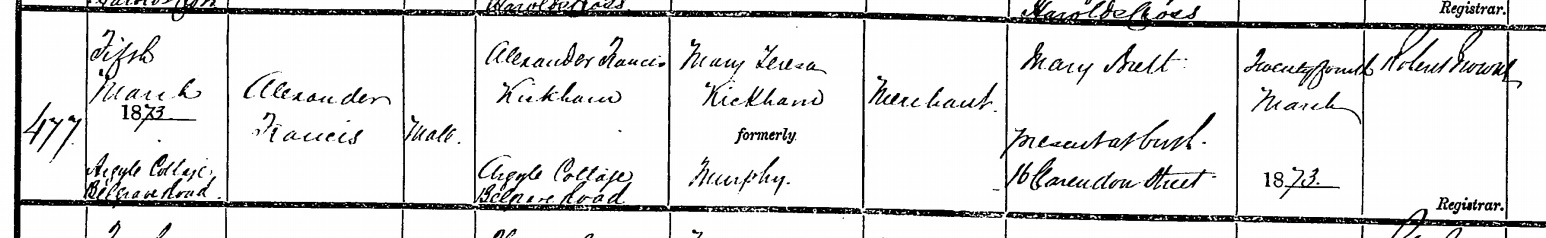 Harolds Cross
Registrar.
477
Fifth
March
1873
Argyle Cottage,
Belgrave Road.
Alexander
Francis
Male.
Alexander Francis
Kickham
Argyle Cottage
Belgrave Road
Mary Teresa
Kickham
formerly
Murphy.
Merchant.
Mary Brett
present at birth.
16 Clarendon Street
Twenty fourth
March
1873.
Robert
Registrar.